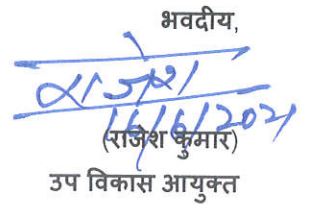 भवदीय,
राजेश
16/6/2021
(राजेश कुमार)
उप विकास आयुक्त